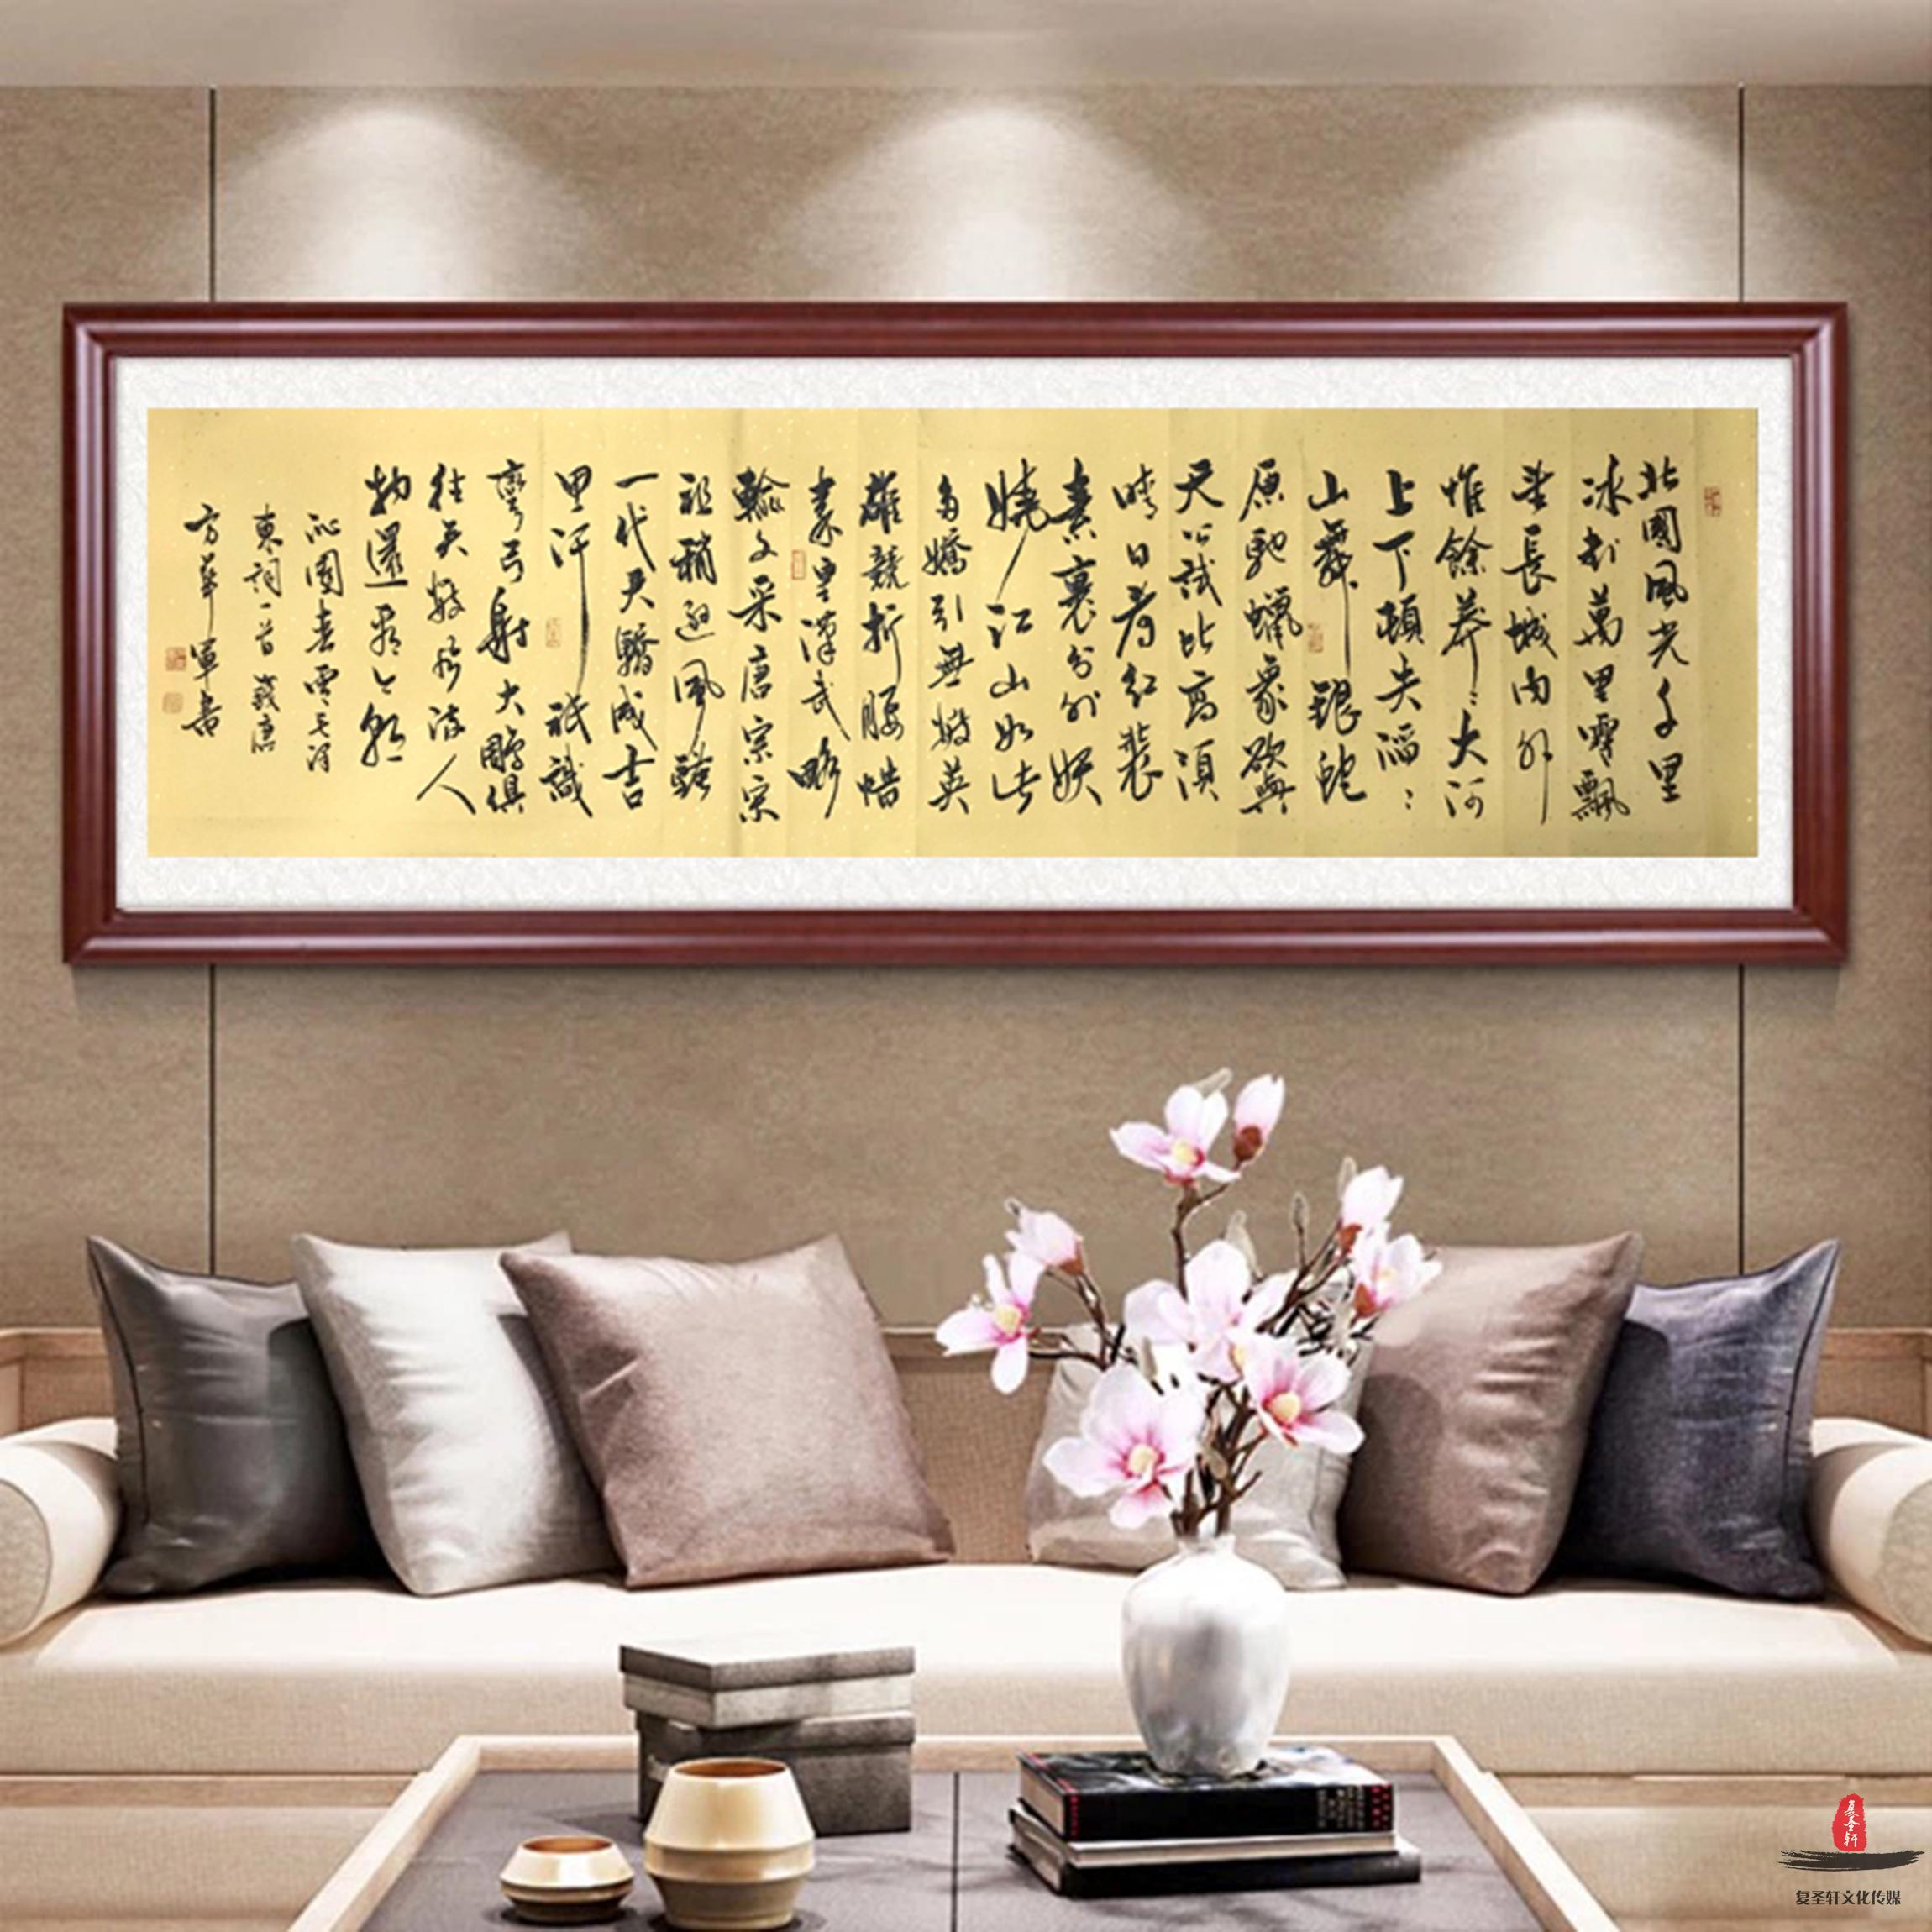 北國風光千里
冰封萬里雪飄
望長城内外
惟餘莽〻大河
上下頓失滔〻
山舞銀蛇
原馳蠟象欲與
天公試比高須
晴日看紅裝
素裹分外妖
嬈江山如此
多嬌引無數英
雄競折腰惜
秦皇漢武略
輸文采唐宗宋
祖稍遜風騷
一代天驕成吉
思汗祇識
彎弓射大雕俱
往矣數風流人
物還看今朝
沁園春雪毛澤
東詞一首 歲
方華軍書
复圣轩
复圣轩文化传媒